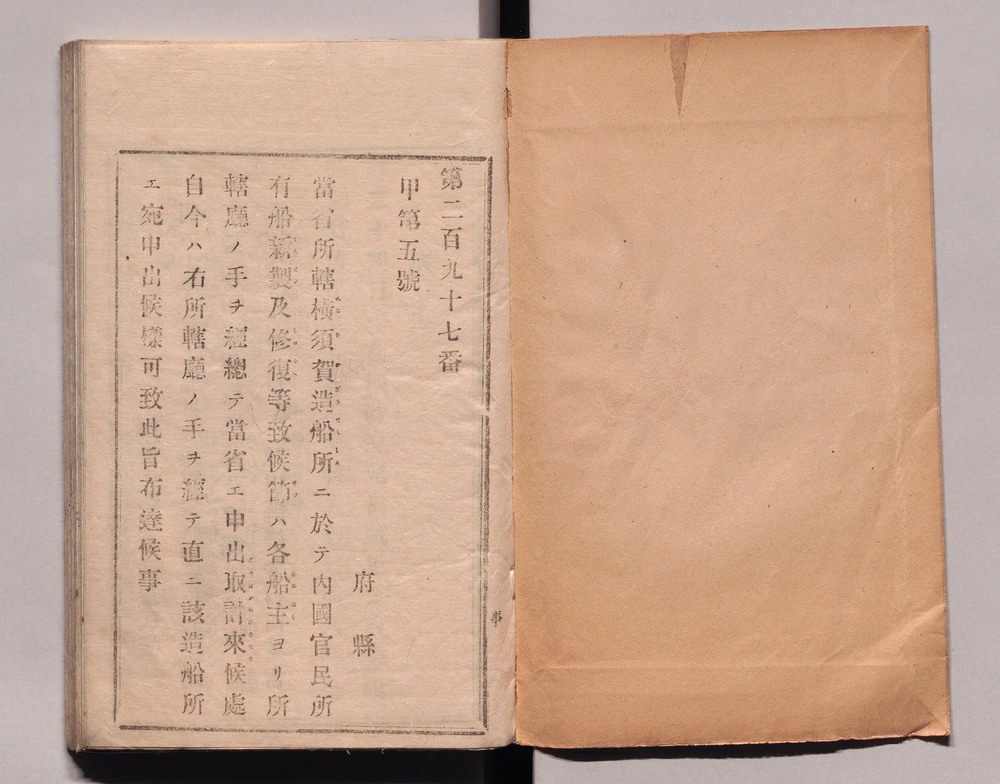 第二百九十七番
甲第五號
府縣
當省所轄橫須賀造船所ニ於テ內國官民所
有船新製及修復等致候節ハ各船主ヨリ所
轄廳ノ手ヲ經總テ當省エ申出取計來候處
自今ハ右所轄廳ノ手ヲ經テ直ニ該造船所
エ宛申出候樣可致此旨布達候事